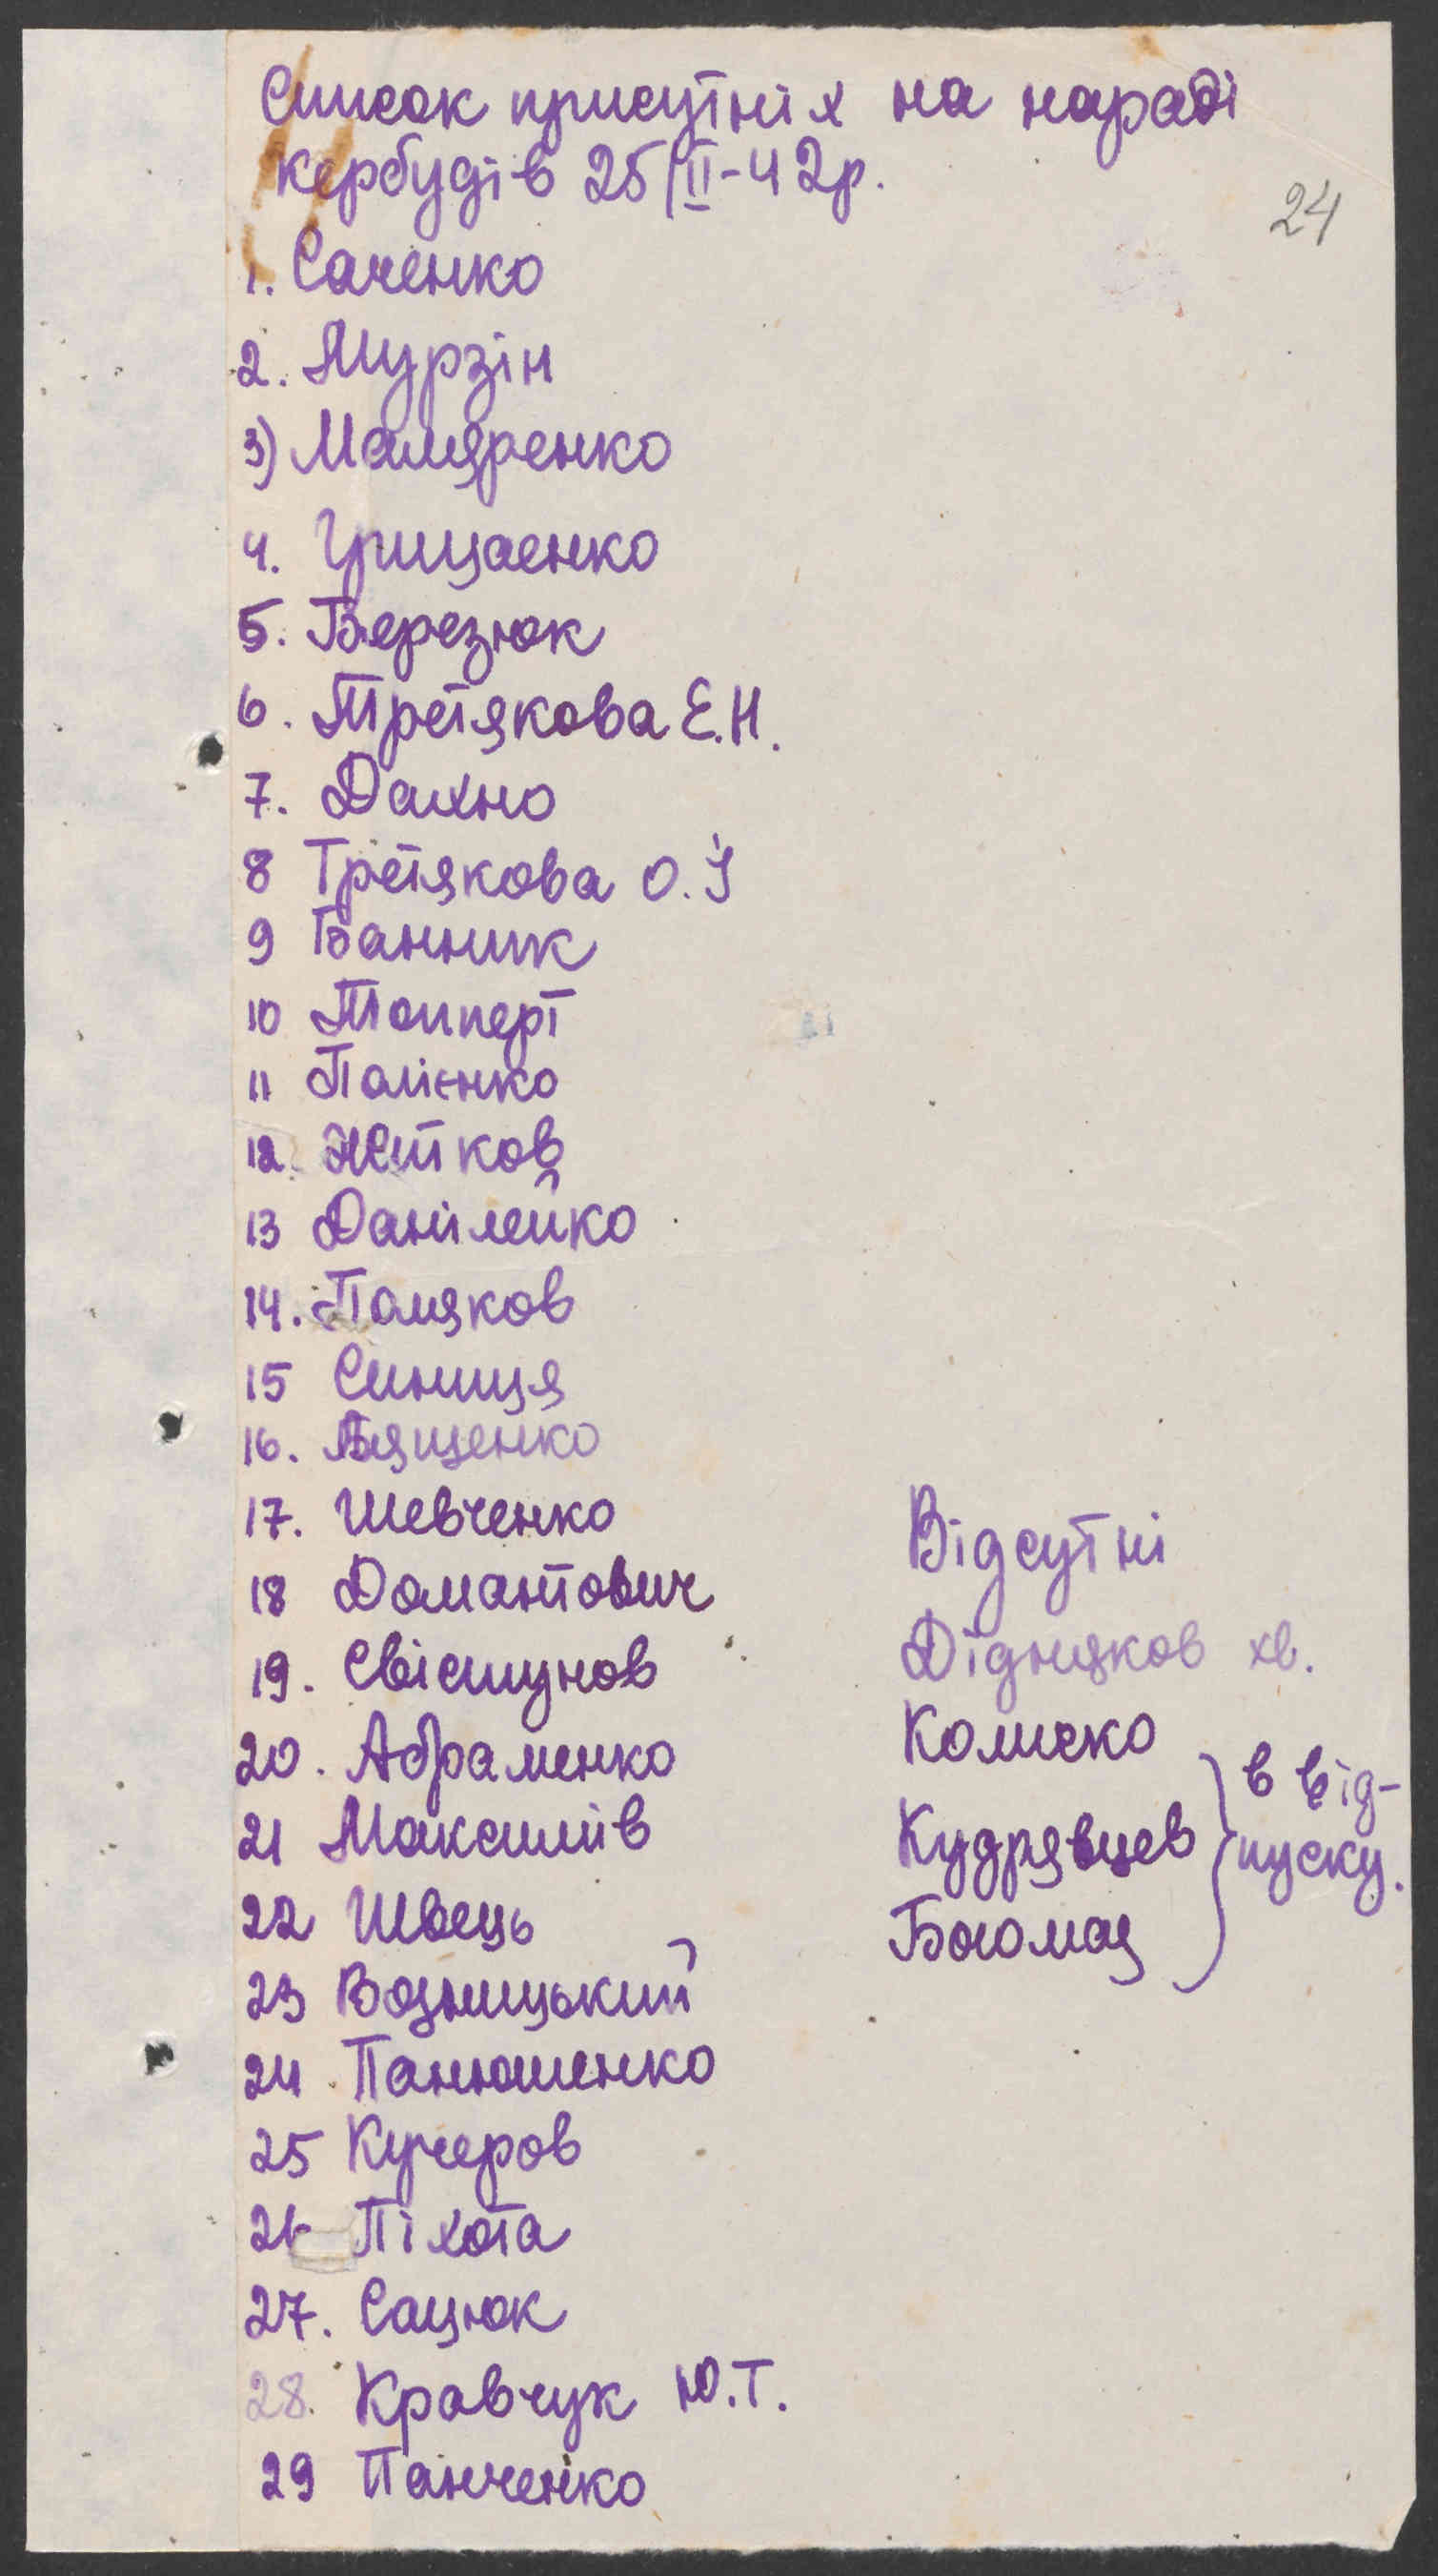 Список присутніх на нараді
кербудів 25/II-42р.
24
1. Саченко
2. Мурзін
3) Маляренко
4. Грицаенко
5. Березюк
6. Третякова Е.Н.
7. Дахно
8 Третякова О.І
9 Банник
10 Топперт
11 Полієнко
12. Жітков
13 Данілейко
14. Поляков
15 Синиця
16. Ященко
17. Шевченко
18 Домантович
19. Свістунов
20. Абраменко
21 Максимів
22 Швець
23 Возницький
24 Панюшенко
25 Кучеров
26 Піхота
27. Сацюк
28. Кравчук Ю.Т.
29 Панченко
Відсутні
Дідняков хв.
Количко
Кудрявцев
Богомая
в від-
пуску.